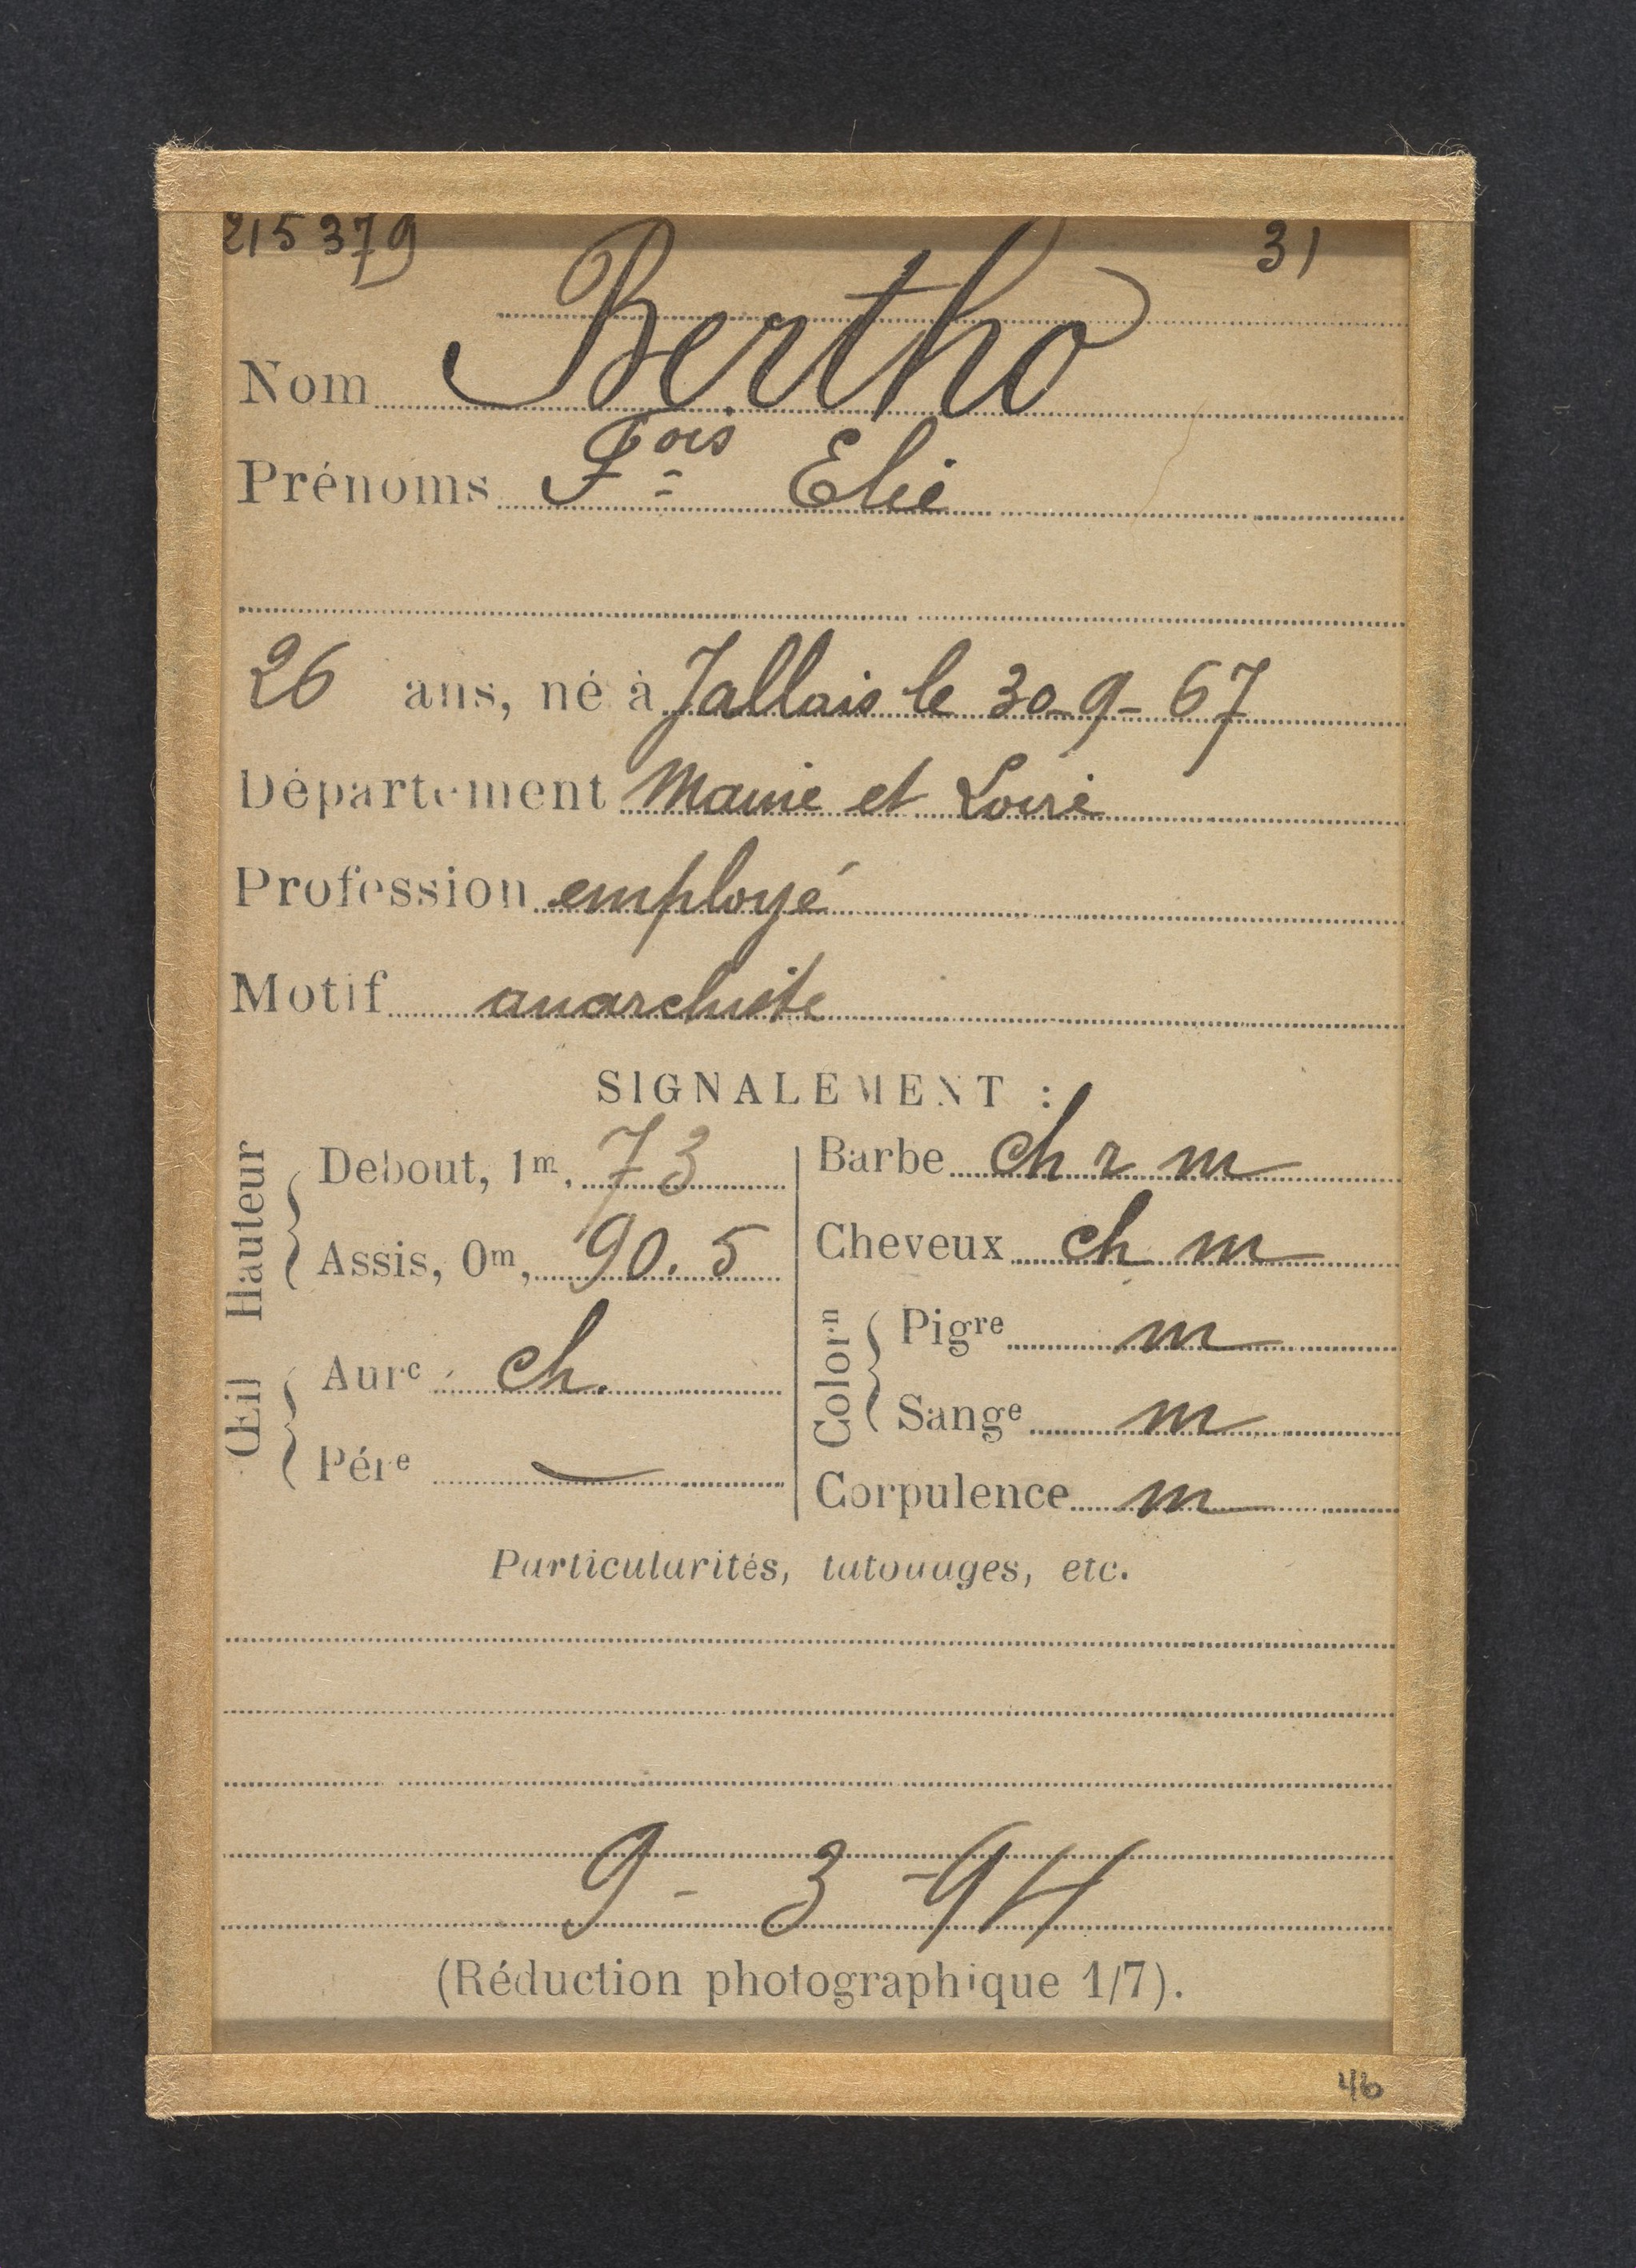 215379 31
Nom Bertho
Prénoms Fois Elie
26 ans, né à Jallais le 30-9-67
Département Maine et Loire
Profession employé
Motif anarchiste
SIGNALEMENT :
Hauteur
Debout, 1m, 73
Assis, 0m, 90.5
Œil
Aure ch.
Pére —
Barbe ch r m
Cheveux ch m
Colorn
Pigre m
Sange m
Corpulence m
Particularités, tatouages, etc.
9 - 3 - 94
(Réduction photographique 1/7).
46